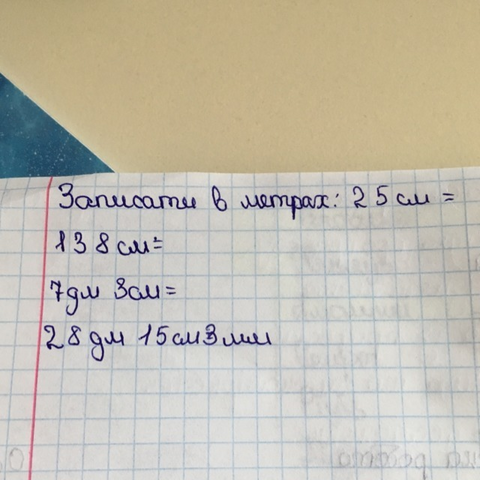 Записати в метрах: 25см =
138см=
7дм 3см=
28дм 15см3мм